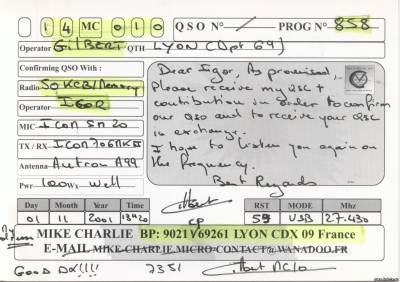 14 MC 010 QSO N° PROG N° 858
Operator GILBERT QTH LYON (Dpt 69)
Confirming QSO With :
Radio 50KCB/Memory
Operator IGOR
MIC ICOM SM20
TX / RX ICOM 706MKII
Antenna Antron A99
Pwr 100w Well
Dear Igor, As promised,
Please receive my QSL +
contribution in order to confirm
our QSO and to receive your QSL
in exchange.
I hope to listen you again on
the frequency.
Best Regards
Day Month Year Time RST MODE Mhz
01 11 2001 13H20 59 USB 27.430
CP
MIKE CHARLIE BP: 9021 69261 LYON CDX 09 France
E-MAIL MIKE-CHARLIE.MICRO-CONTACT@WANADOO.FR
GOOD DX!!!! 73 51